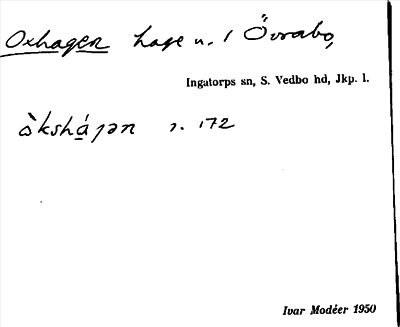 Oxhagen hage u. 1 Övrabo,
Ingatorps sn, S. Vedbo hd, Jkp. l.
òkshágən s. 172
Ivar Modéer 1950